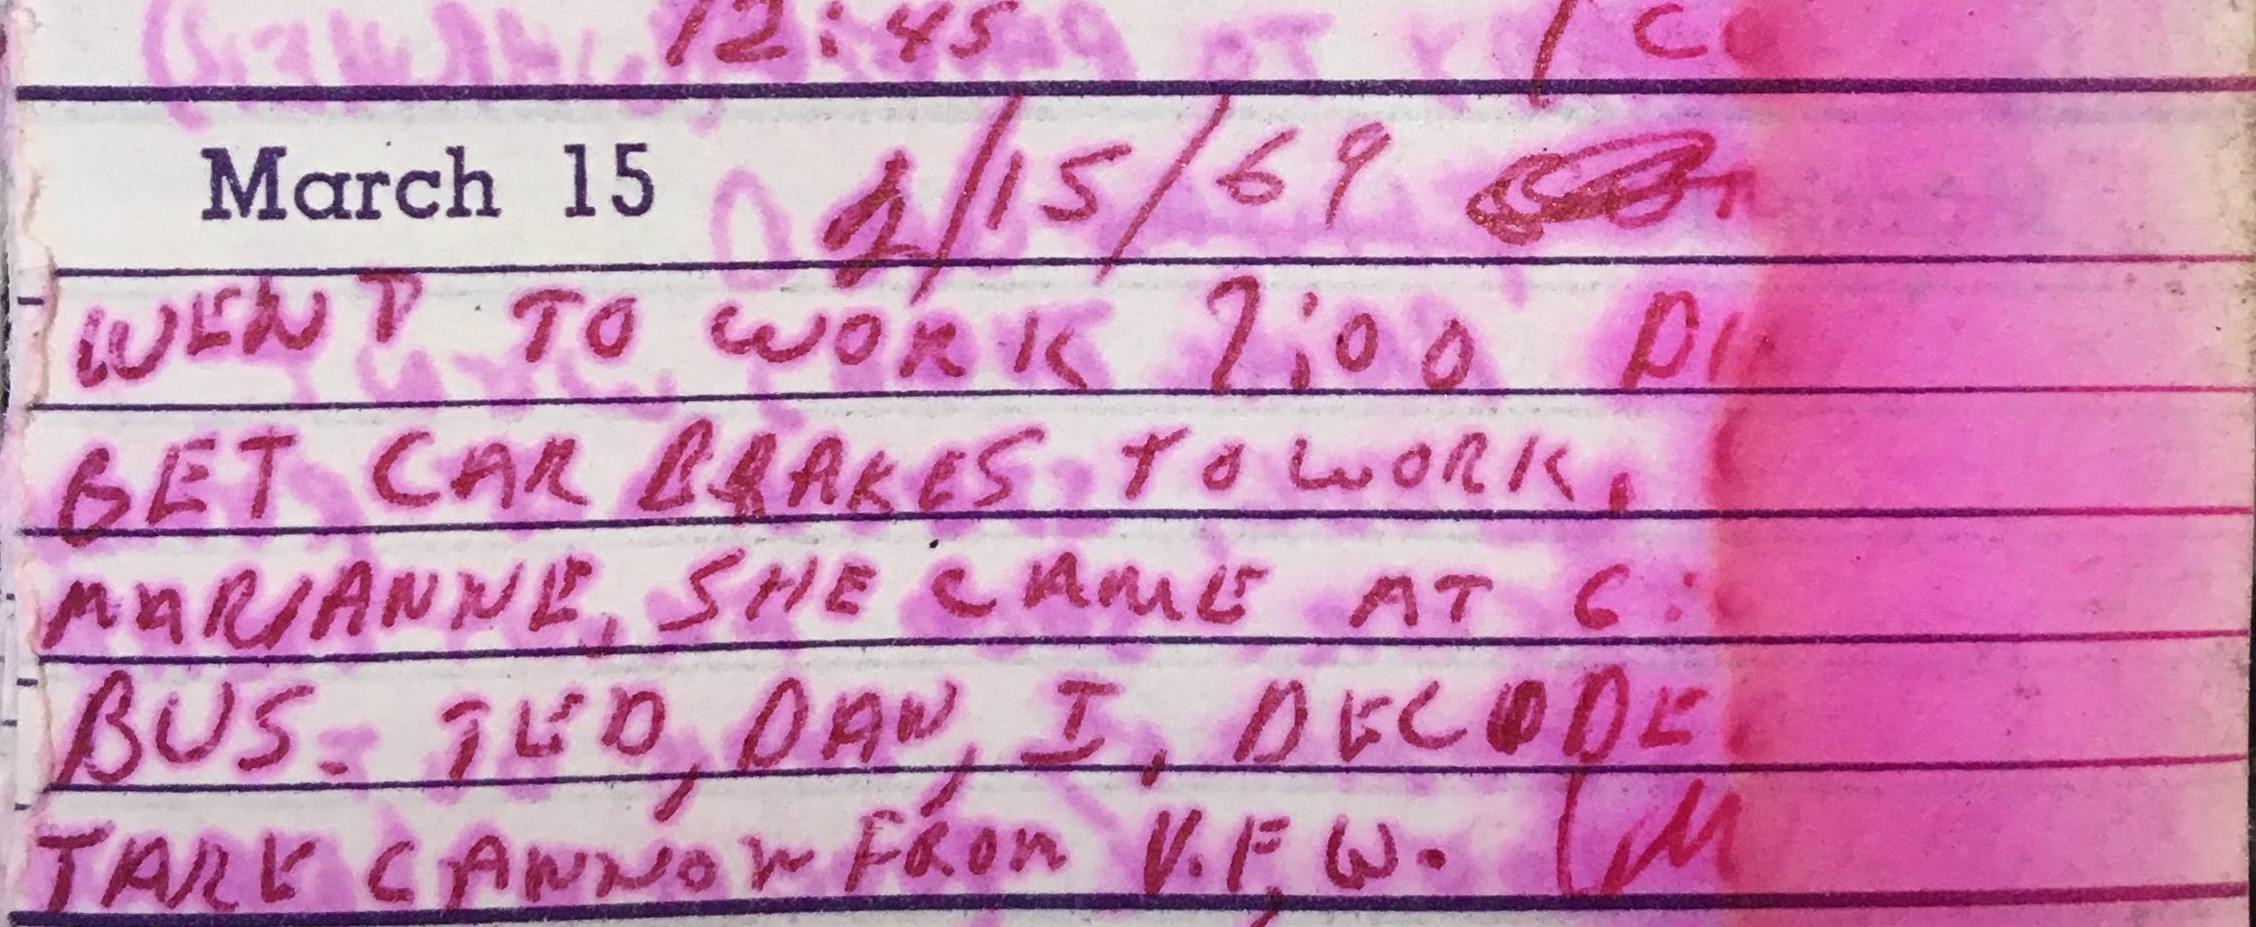 12:45
March 15 2/15/69
WENT TO WORK 7:00
BET CAR BRAKES TO WORK.
MARIANNE, SHE CAME AT 6:
BUS. TED, DAN, I, DECODE
TAKE CANNON FROM V.F.W.